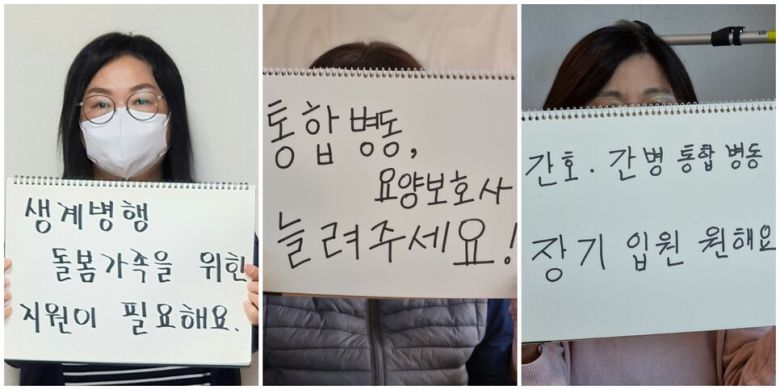 생계병행
돌봄가족을 위한
지원이 필요해요.
통합병동,
요양보호사
늘려주세요!
간호·간병 통합 병동
장기 입원 원해요